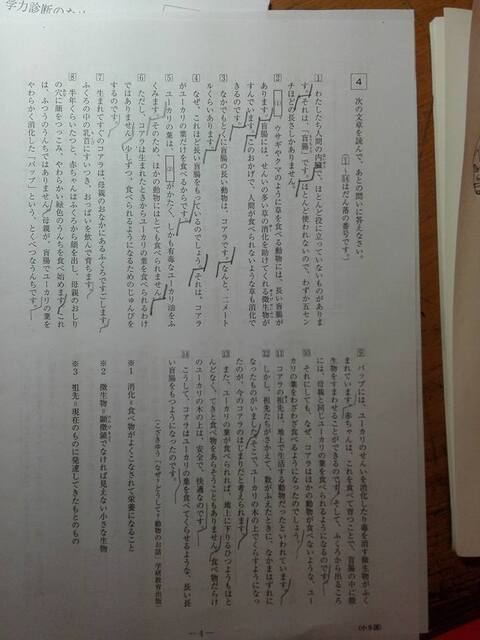 学力診断のた
4 次の文章を読んで、あとの問いに答えなさい。
(1〜14はだん落の番号です。)
1 わたしたち人間の内臓で、ほとんど役に立っていないものがありま
す。それは、「盲腸」です。ほとんど使われないので、わずか五セン
チほどの長さしかありません。
2 ウサギやクマのように草を食べる動物には、長い盲腸が
あります。盲腸には、せんいの多い草の消化を助けてくれる微生物が
すんでいます。このおかげで、人間が食べられないような草も消化で
きるのです。
3 なかでもとくに盲腸の長い動物は、コアラです。なんと、二メート
ルぐらいあります。
4 なぜ、これほど長い盲腸をもっているのでしょう。それは、コアラ
がユーカリの葉だけを食べるからです。
5 ユーカリの葉は、 がかたく、しかも有毒なユーカリ油をふ
くみます。そのため、ほかの動物にはとても食べられません。
6 ただし、コアラは生まれたときからユーカリの葉を食べられるわけ
ではありません。少しずつ、食べられるようになるためのじゅんびを
するのです。
7 生まれてすぐのコアラは、母親のおなかにあるふくろですごします。
ふくろの中の乳首にすいつき、おっぱいを飲んで育ちます。
8 半年くらいたつと、赤ちゃんはふくろから顔を出し、母親のおしり
の穴に顔をつっこみ、やわらかい緑色のうんちを食べ始めます。これ
は、ふつうのうんちではありません。母親が、盲腸でユーカリの葉を
やわらかく消化した「パップ」という、とくべつなうんちです。
9 パップには、ユーカリのせんいを消化したり毒を消す微生物がふく
まれています。赤ちゃんは、これを食べて育つことで、盲腸の中に微
生物をすまわせることができるのです。そして、ふくろから出るころ
には、母親と同じユーカリの葉を食べられるようになるのです。
10 それにしても、なぜ、コアラはほかの動物が食べないような、ユー
カリの葉をわざわざ食べるようになったのでしょう。
11 コアラの祖先は、地上で生活する動物だったといわれています。
12 しかし、祖先たちがさかえて、数がふえたときに、なかまはずれに
なったものがいました。そこで、ユーカリの木の上でくらすようになっ
たのが、今のコアラのはじまりだと考えられます。
13 また、ユーカリの葉が食べられれば、地上に下りるひつようもほと
んどなく、てきと食べ物をあらそうこともありません。食べ物だらけ
のユーカリの木の上は、安全で、快適なのです。
14 こうして、コアラはユーカリの葉を食べてくらせるような、長い長
い盲腸をもつようになったのです。
(こざきゆう「なぜ?どうして?動物のお話」学研教育出版)
※1 消化=食べ物がよくこなされて栄養になること
※2 微生物=顕微鏡でなければ見えない小さな生物
※3 祖先=現在のものに発達してきたもとのもの
— 4 —